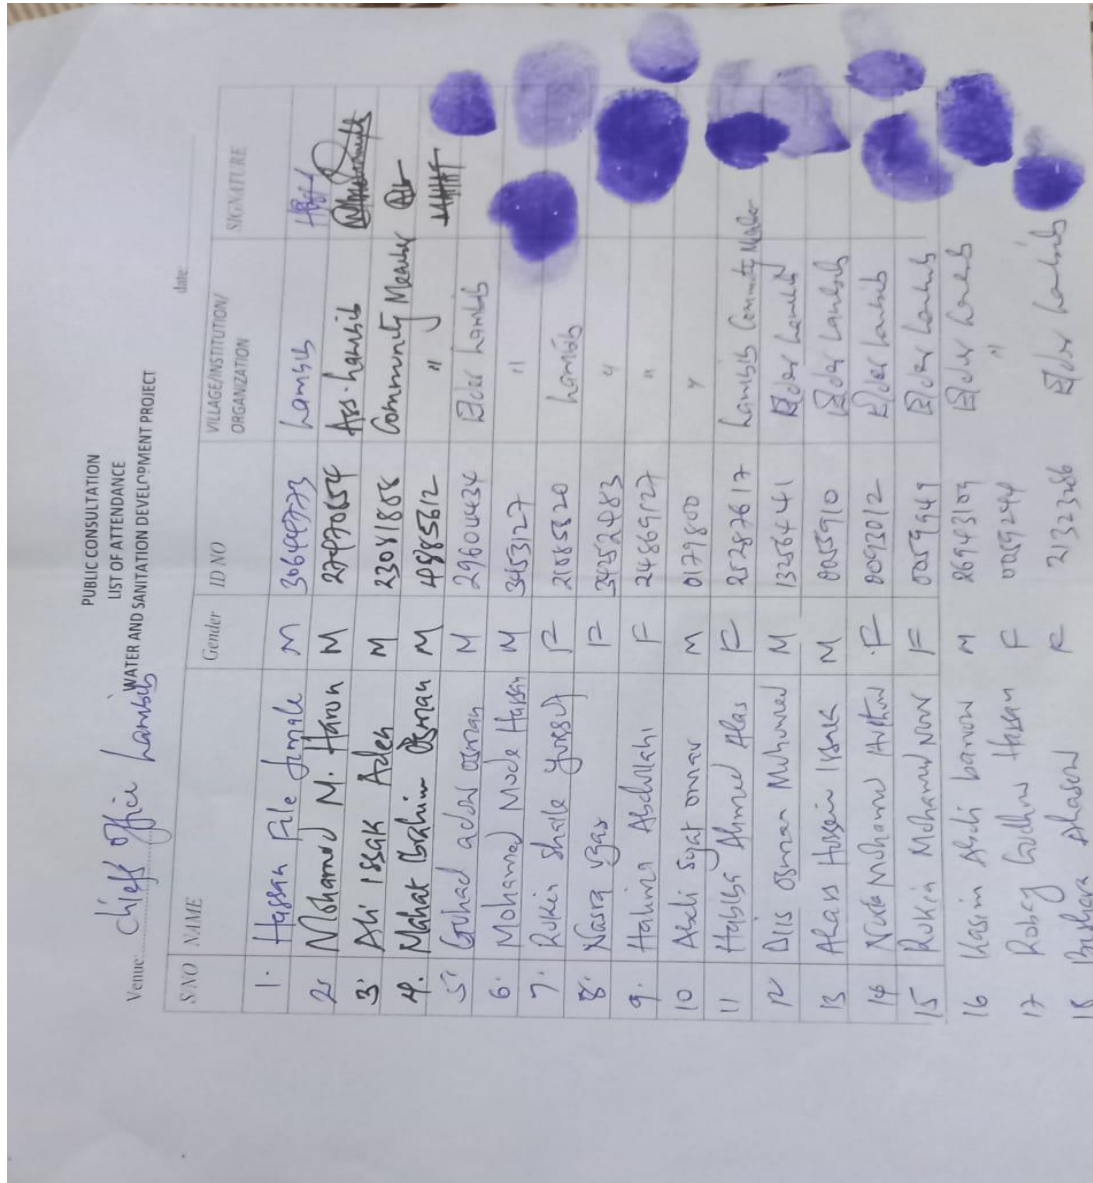 PUBLIC CONSULTATION
LIST OF ATTENDANCE
WATER AND SANITATION DEVELOPMENT PROJECT
Venue: Chiefs office Lambib date
S/NO NAME Gender ID NO VILLAGE/INSTITUTION/ORGANIZATION SIGNATURE
1. Hassan File Jimale M Lambib
2. Mohamed M. Haron M 27470654 Ass. Lambib
3. Ali Issak Aden M 23081858 Community Member
4. Mahat Ibrahim Osman M 4885612 "
5. Osman M 29600434 Elder Lambib
6. Mohamed Mode Hassan M 3453127 "
7. Rukia Shale Yussuf F 2185820 Lambib
8. Nasra F 34252483 "
9. Halima Abdullahi F 24869127 "
10 Abdi Siyat Omar M 0179800 "
11 Habiba Ahmed Alas F 25287617 Lambib Community Member
12 Dlis Osman Muhumed M 13256441 Elder Lambib
13 Hussein Issak M 0055910 Elder Lambib
14 Mohamed F 0093012 Elder Lambib
15 Rukia Mohamed Noor F 0059949 Elder Lambib
16 Kasim Abdi barrow M 26943109 Elder Lambib
17 Robey Hassan F 0059244 "
18 Bishara F 21323286 Elder Lambib